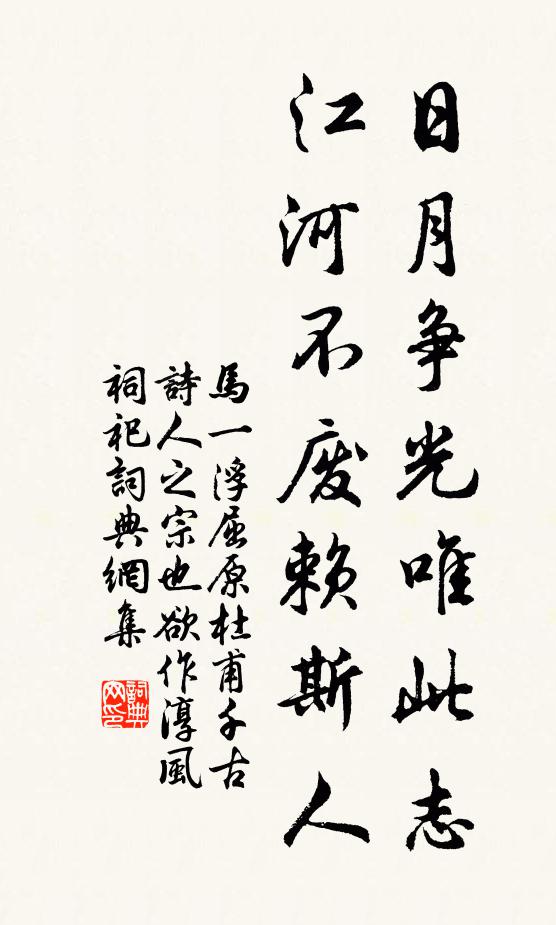 日月争光唯此志
江河不廢賴斯人
馬一浮屈原杜甫千古
詩人之宗也欲作淳風
祠祀詞典網集
詞典
网印